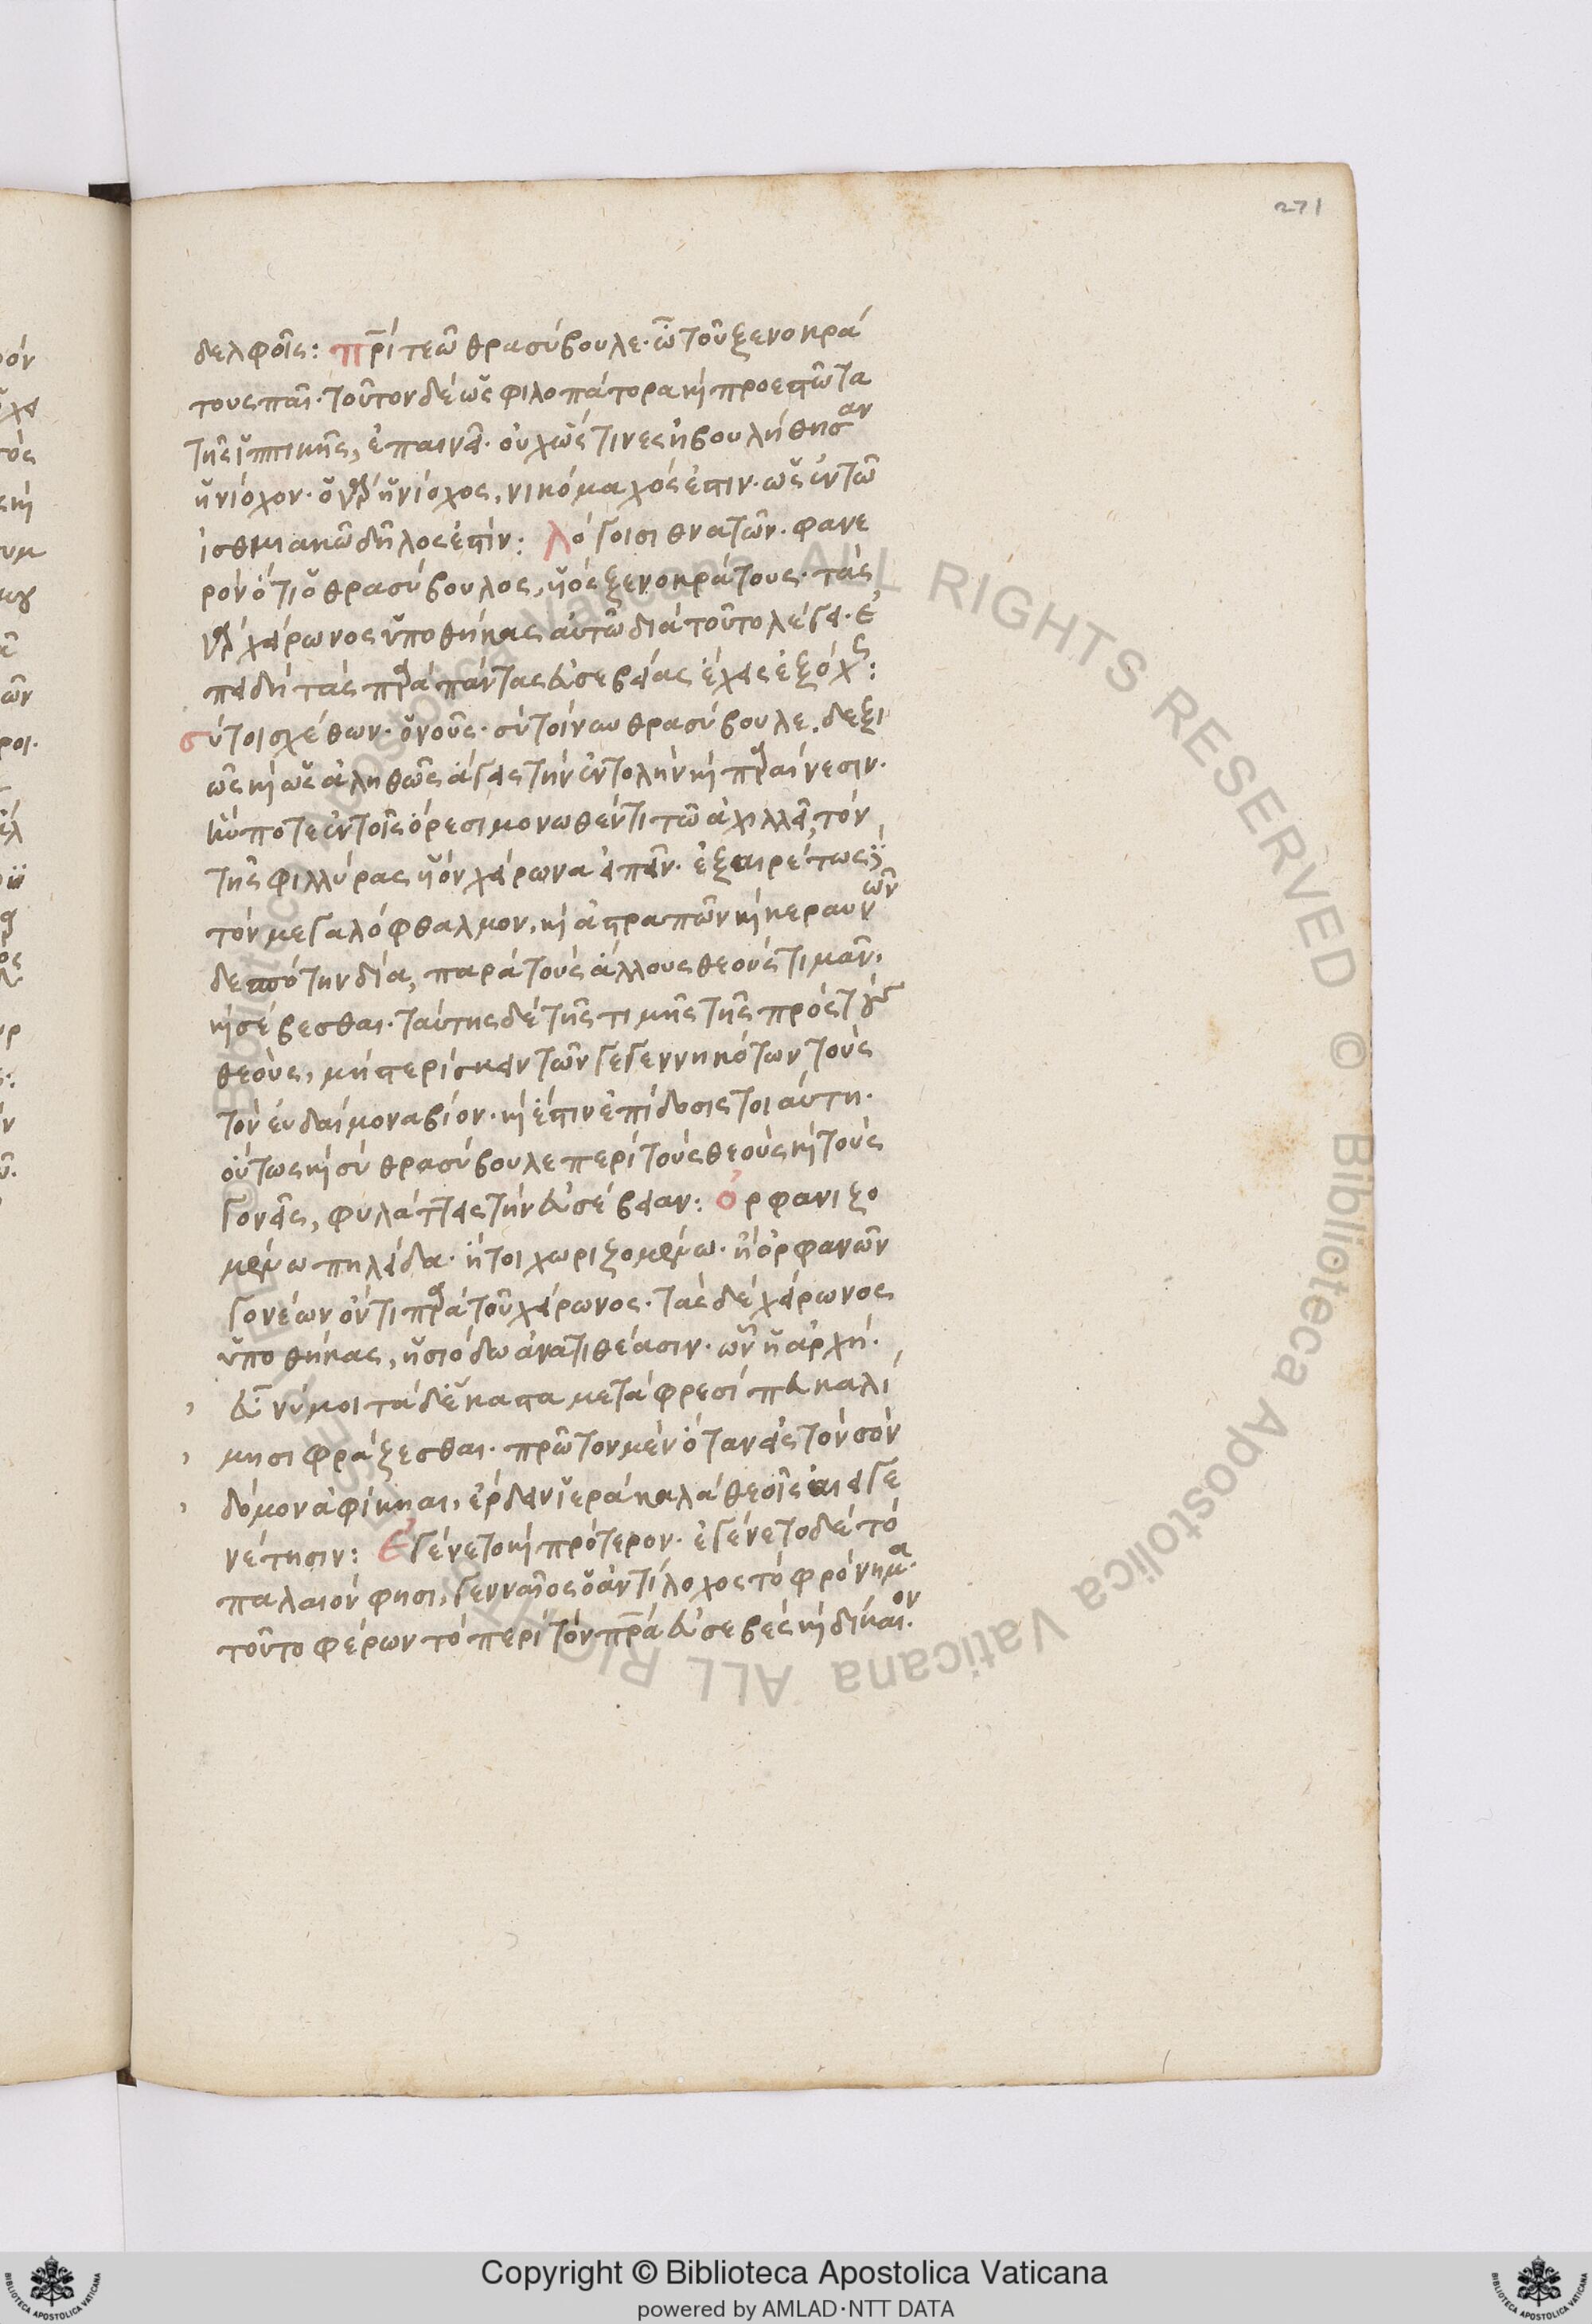 271
δελφοῖς: πρὶ τεῷ θρασύβουλε· ὦ τοῦ ξενοκρά
τους παῖ· τοῦτον δὲ ὡς φιλοπάτορα κὶ προεστῶτα
τῆς ἱππικῆς, ἐπαινεῖ· οὐχ ὥς τινες ἠβουλήθησαν
ἡνίοχον· ὁ γὰρ ἡνίοχος, νικόμαχός ἐστιν· ὡς ἐν τῶ
ἰσθμιακῶ δῆλος ἐστίν: λόγοισι θνατῶν· φανε
ρὸν ὅτι ὁ θρασύβουλος, υἱὸς ξενοκράτους· τὰς
γὰρ χείρωνος ὑποθήκας αὐτῶ διὰ τοῦτο λέγει· ἐ
πειδὴ τὰς πρὰ πάντας εὐσεβείας ἔχεις ἐξόχς:
σύ τοι σχέθων· ὁ νοῦς· σὺ τοίνυν ὦ θρασύβουλε, δεξι
ῶς κὶ ὡς ἀληθῶς ἄγεις τὴν ἐντολὴν κὶ πραίνεσιν·
ἥν ποτε ἐν τοῖς ὄρεσι μονωθέντι τῶ ἀχιλλεῖ, τὸν
τῆς φιλλύρας υἱὸν χείρωνα εἰπεῖν· ἐξαιρέτως
τὸν μεγαλόφθαλμον, κὶ ἀστραπῶν κὶ κεραυνῶν
δεσπότην δία, παρὰ τοὺς ἄλλους θεοὺς τιμᾶν,
κὶ σέβεσθαι· ταύτης δὲ τῆς τιμῆς τῆς πρὸς τοὺς
θεοὺς, μὴ στερίσκειν τῶν γεγεννηκότων τοὺς
τὸν εὐδαίμονα βίον· κὶ ἔστιν ἐπίδοσις τοιαύτη·
οὕτως κὶ σὺ θρασύβουλε περὶ τοὺς θεοὺς κὶ τοὺς
γονεῖς, φυλάττεις τὴν εὐσέβειαν: ὀρφανιζο
μένω πηλείδα· ἤτοι χωριζομένω· ἢ ὀρφανῶν
γονέων ὄντι πρὰ τοῦ χείρωνος· τὰς δὲ χείρωνος
ὑποθήκας, ἡσιόδω ἀνατιθέασιν· ὧν ἡ ἀρχή·
εὖ νύ μοι τὰ δ' ἕκαστα μετὰ φρεσὶ πευκαλί
μησι φράζεσθαι· πρῶτον μὲν ὅταν εἰς τὸν σὸν
δόμον ἀφίκηαι, ἔρδειν ἱερὰ καλὰ θεοῖς αἰειγε
νέτησιν: ἐγένετο κὶ πρότερον· ἐγένετο δὲ τὸ
παλαιόν φησι, γενναῖος ὁ ἀντίλοχος τὸ φρόνημα·
τοῦτο φέρων τὸ περὶ τὸν πρὰ εὐσεβὲς κὶ δίκαιον·
Copyright © Biblioteca Apostolica Vaticana
powered by AMLAD·NTT DATA